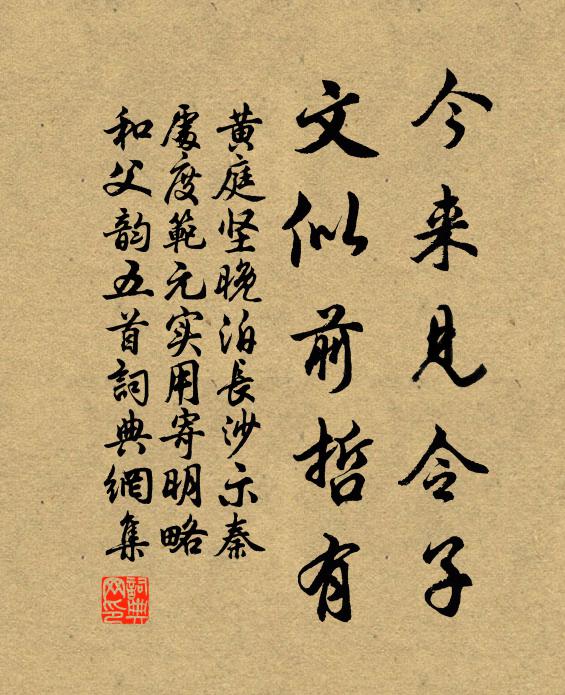 今来見令子
文似前哲有
黄庭坚晚泊長沙示秦
處度範元实用寄明略
和父韵五首詞典網集
詞典
网印